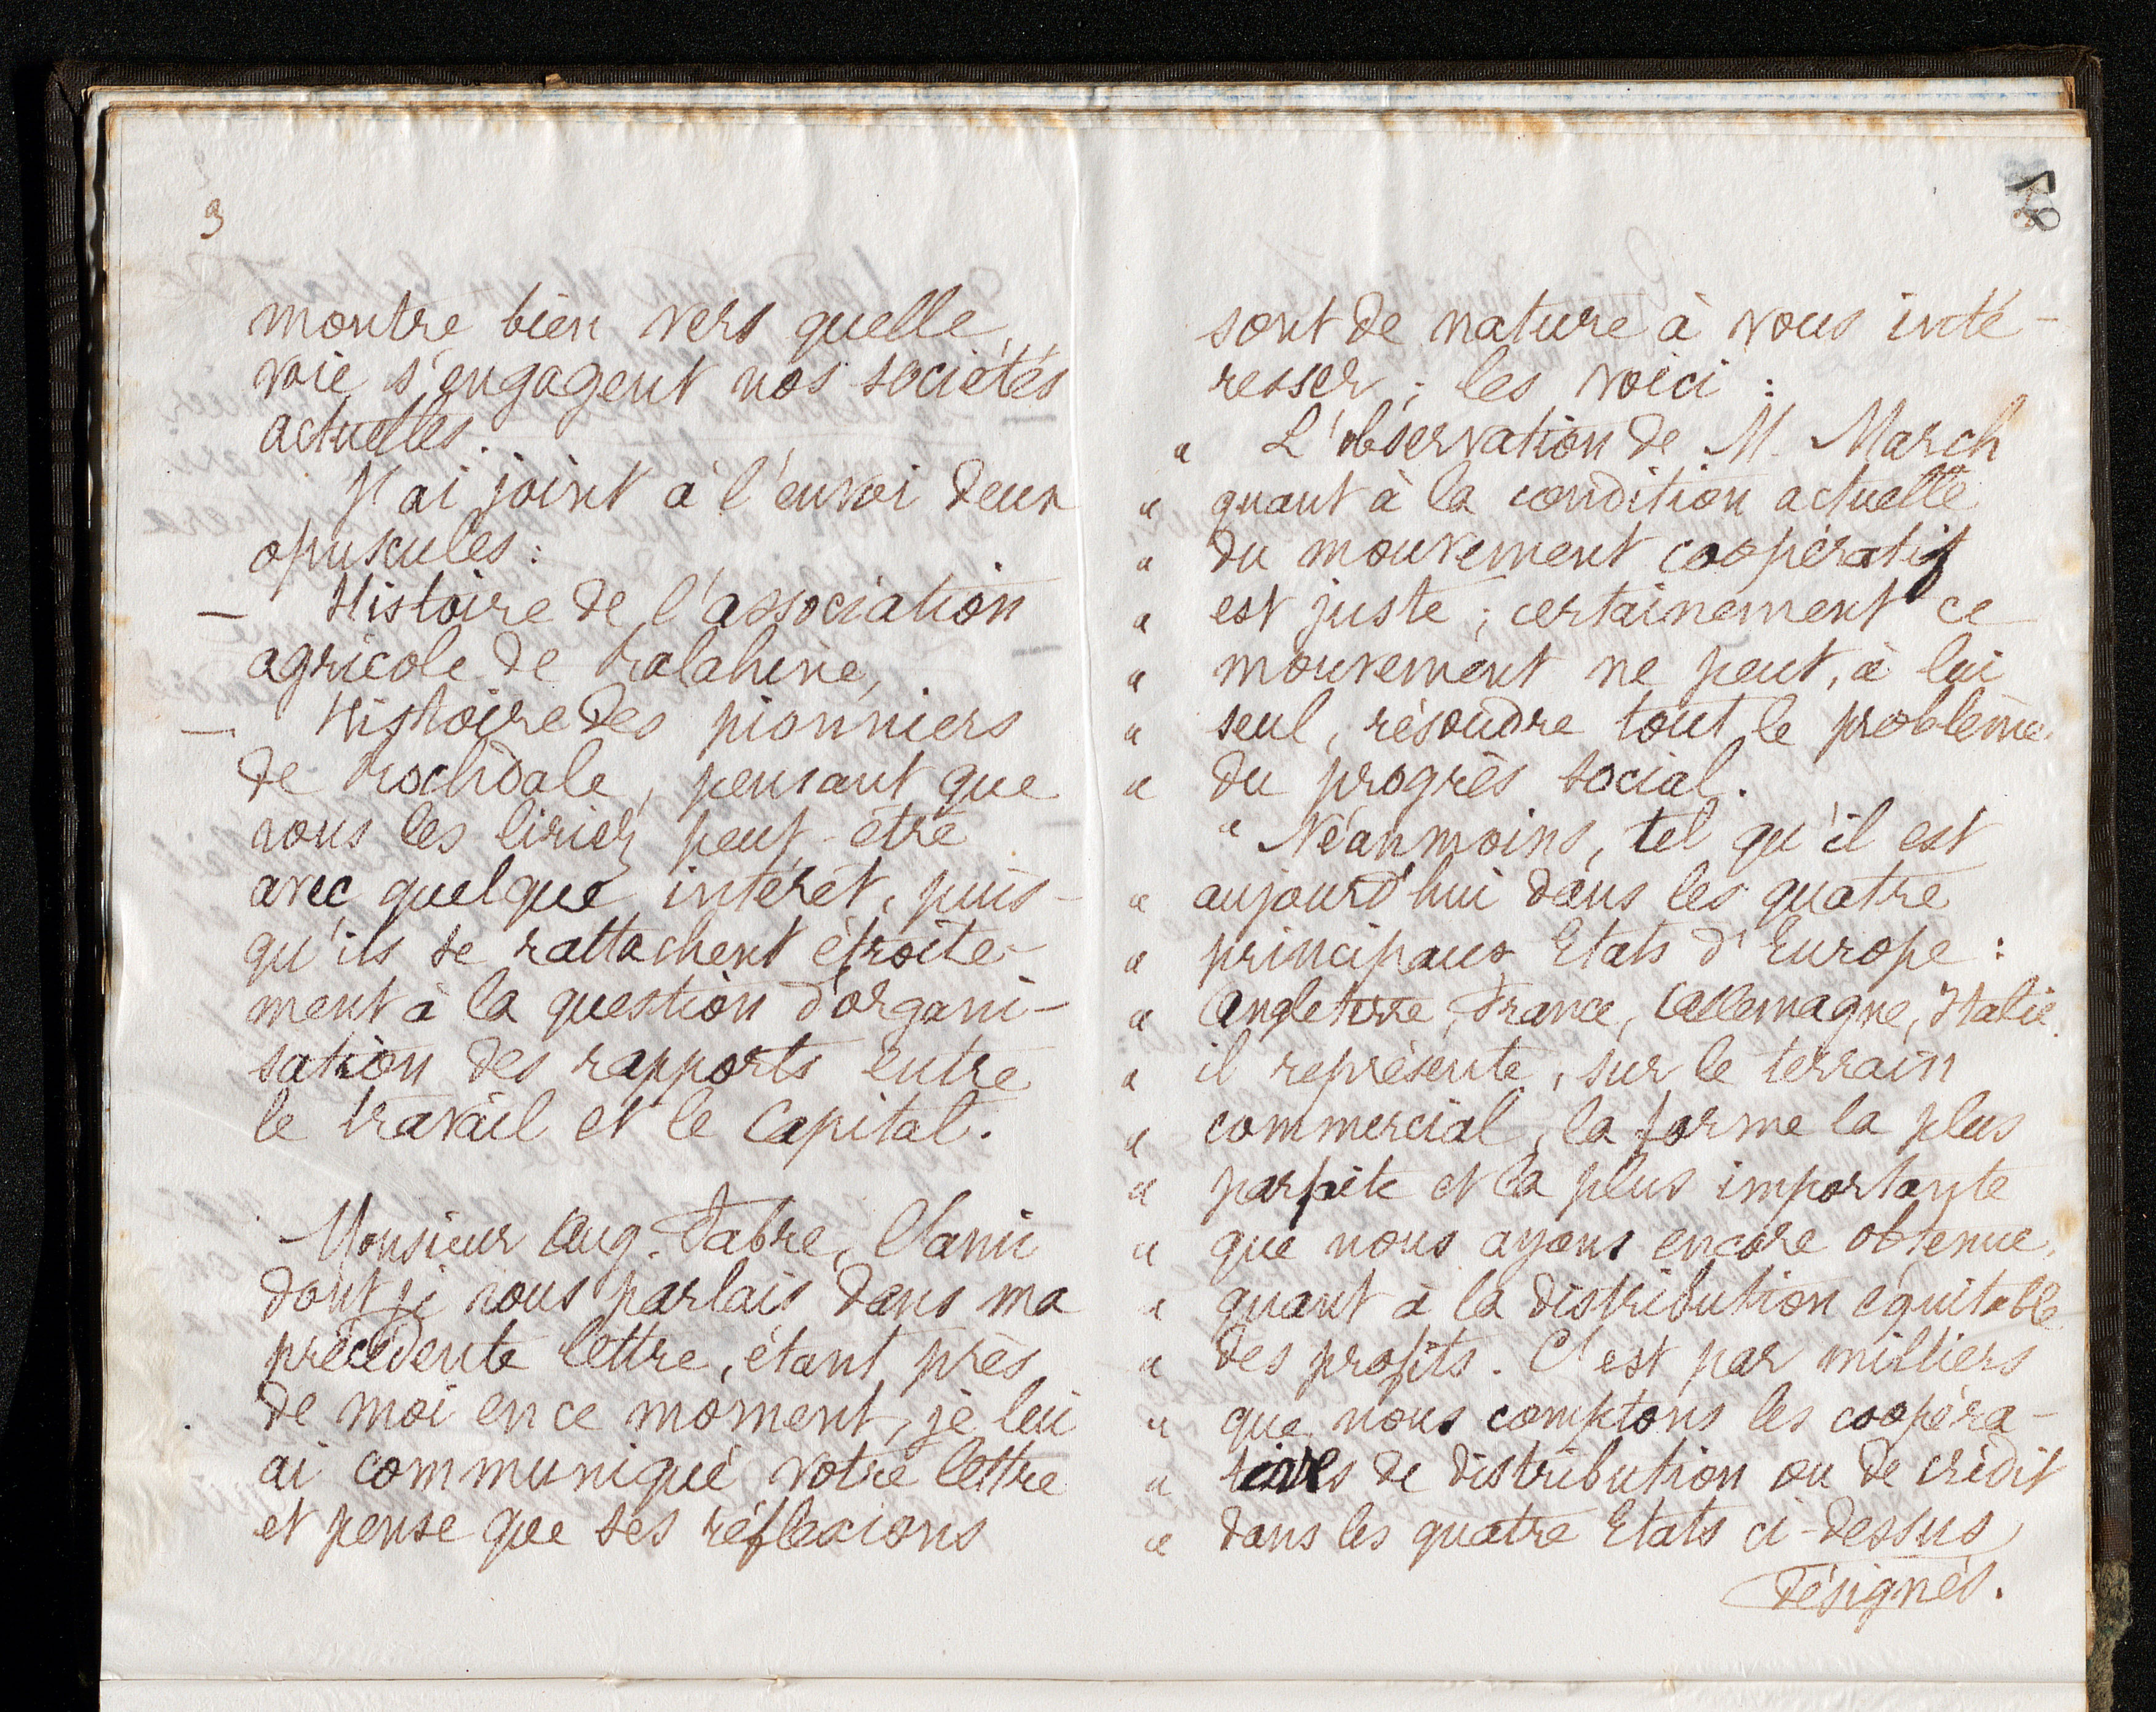 3
montre bien vers quelle
voie s'engagent nos sociétés
actuelles.
J'ai joint à l'envoi deux
opuscules :
— Histoire de l'association
agricole de Ralahine,
— Histoire des pionniers
de Rochdale, pensant que
vous les liriez peut-être
avec quelque intérêt, puis-
qu'ils se rattachent étroite-
ment à la question d'organi-
sation des rapports entre
le travail et le Capital.
Monsieur Aug. Fabre, l'ami
dont je vous parlais dans ma
précédente lettre, étant près
de moi en ce moment, je lui
ai communiqué votre lettre
et pense que ses réflexions
sont de nature à vous inté-
resser ; les voici :
« L'observation de M. March
« quant à la condition actuelle
« du mouvement coopératif
« est juste ; certainement ce
« mouvement ne peut, à lui
« seul, résoudre tout le problème
« du progrès social.
« Néanmoins, tel qu'il est
« aujourd'hui dans les quatre
« principaux Etats d'Europe :
« Angleterre, France, Allemagne, Italie,
« il représente, sur le terrain
« commercial, la forme la plus
« parfaite et la plus importante
« que nous ayons encore obtenue,
« quant à la distribution équitable
« des profits. C'est par milliers
« que nous comptons les coopéra-
« tives de distribution ou de crédit
« dans les quatre Etats ci-dessus
désignés.